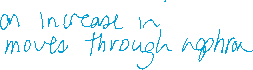 an increase in
moves through nephron